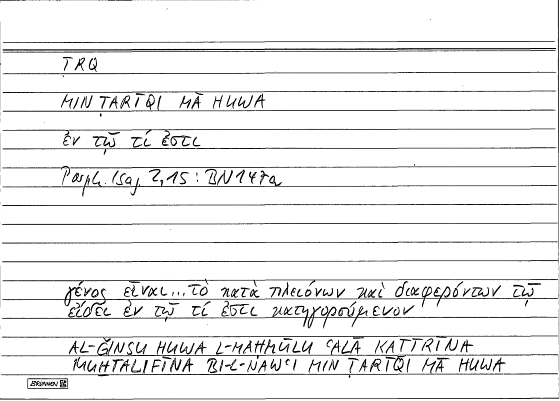 ṬRQ
MIN ṬARĪQI MĀ HUWA
ἐν τῷ τί ἐστι
Porph. Isag. 2,15 : BN 147a
γένος εἶναι...τὸ κατὰ πλειόνων καὶ διαφερόντων τῷ
εἴδει ἐν τῷ τί ἐστι κατηγορούμενον
AL-ǦINSU HUWA L-MAḤMŪLU ʿALĀ KAṮĪRĪNA
MUḪTALIFĪNA BI-L-NAWʿI MIN ṬARĪQI MĀ HUWA
BRUNNEN